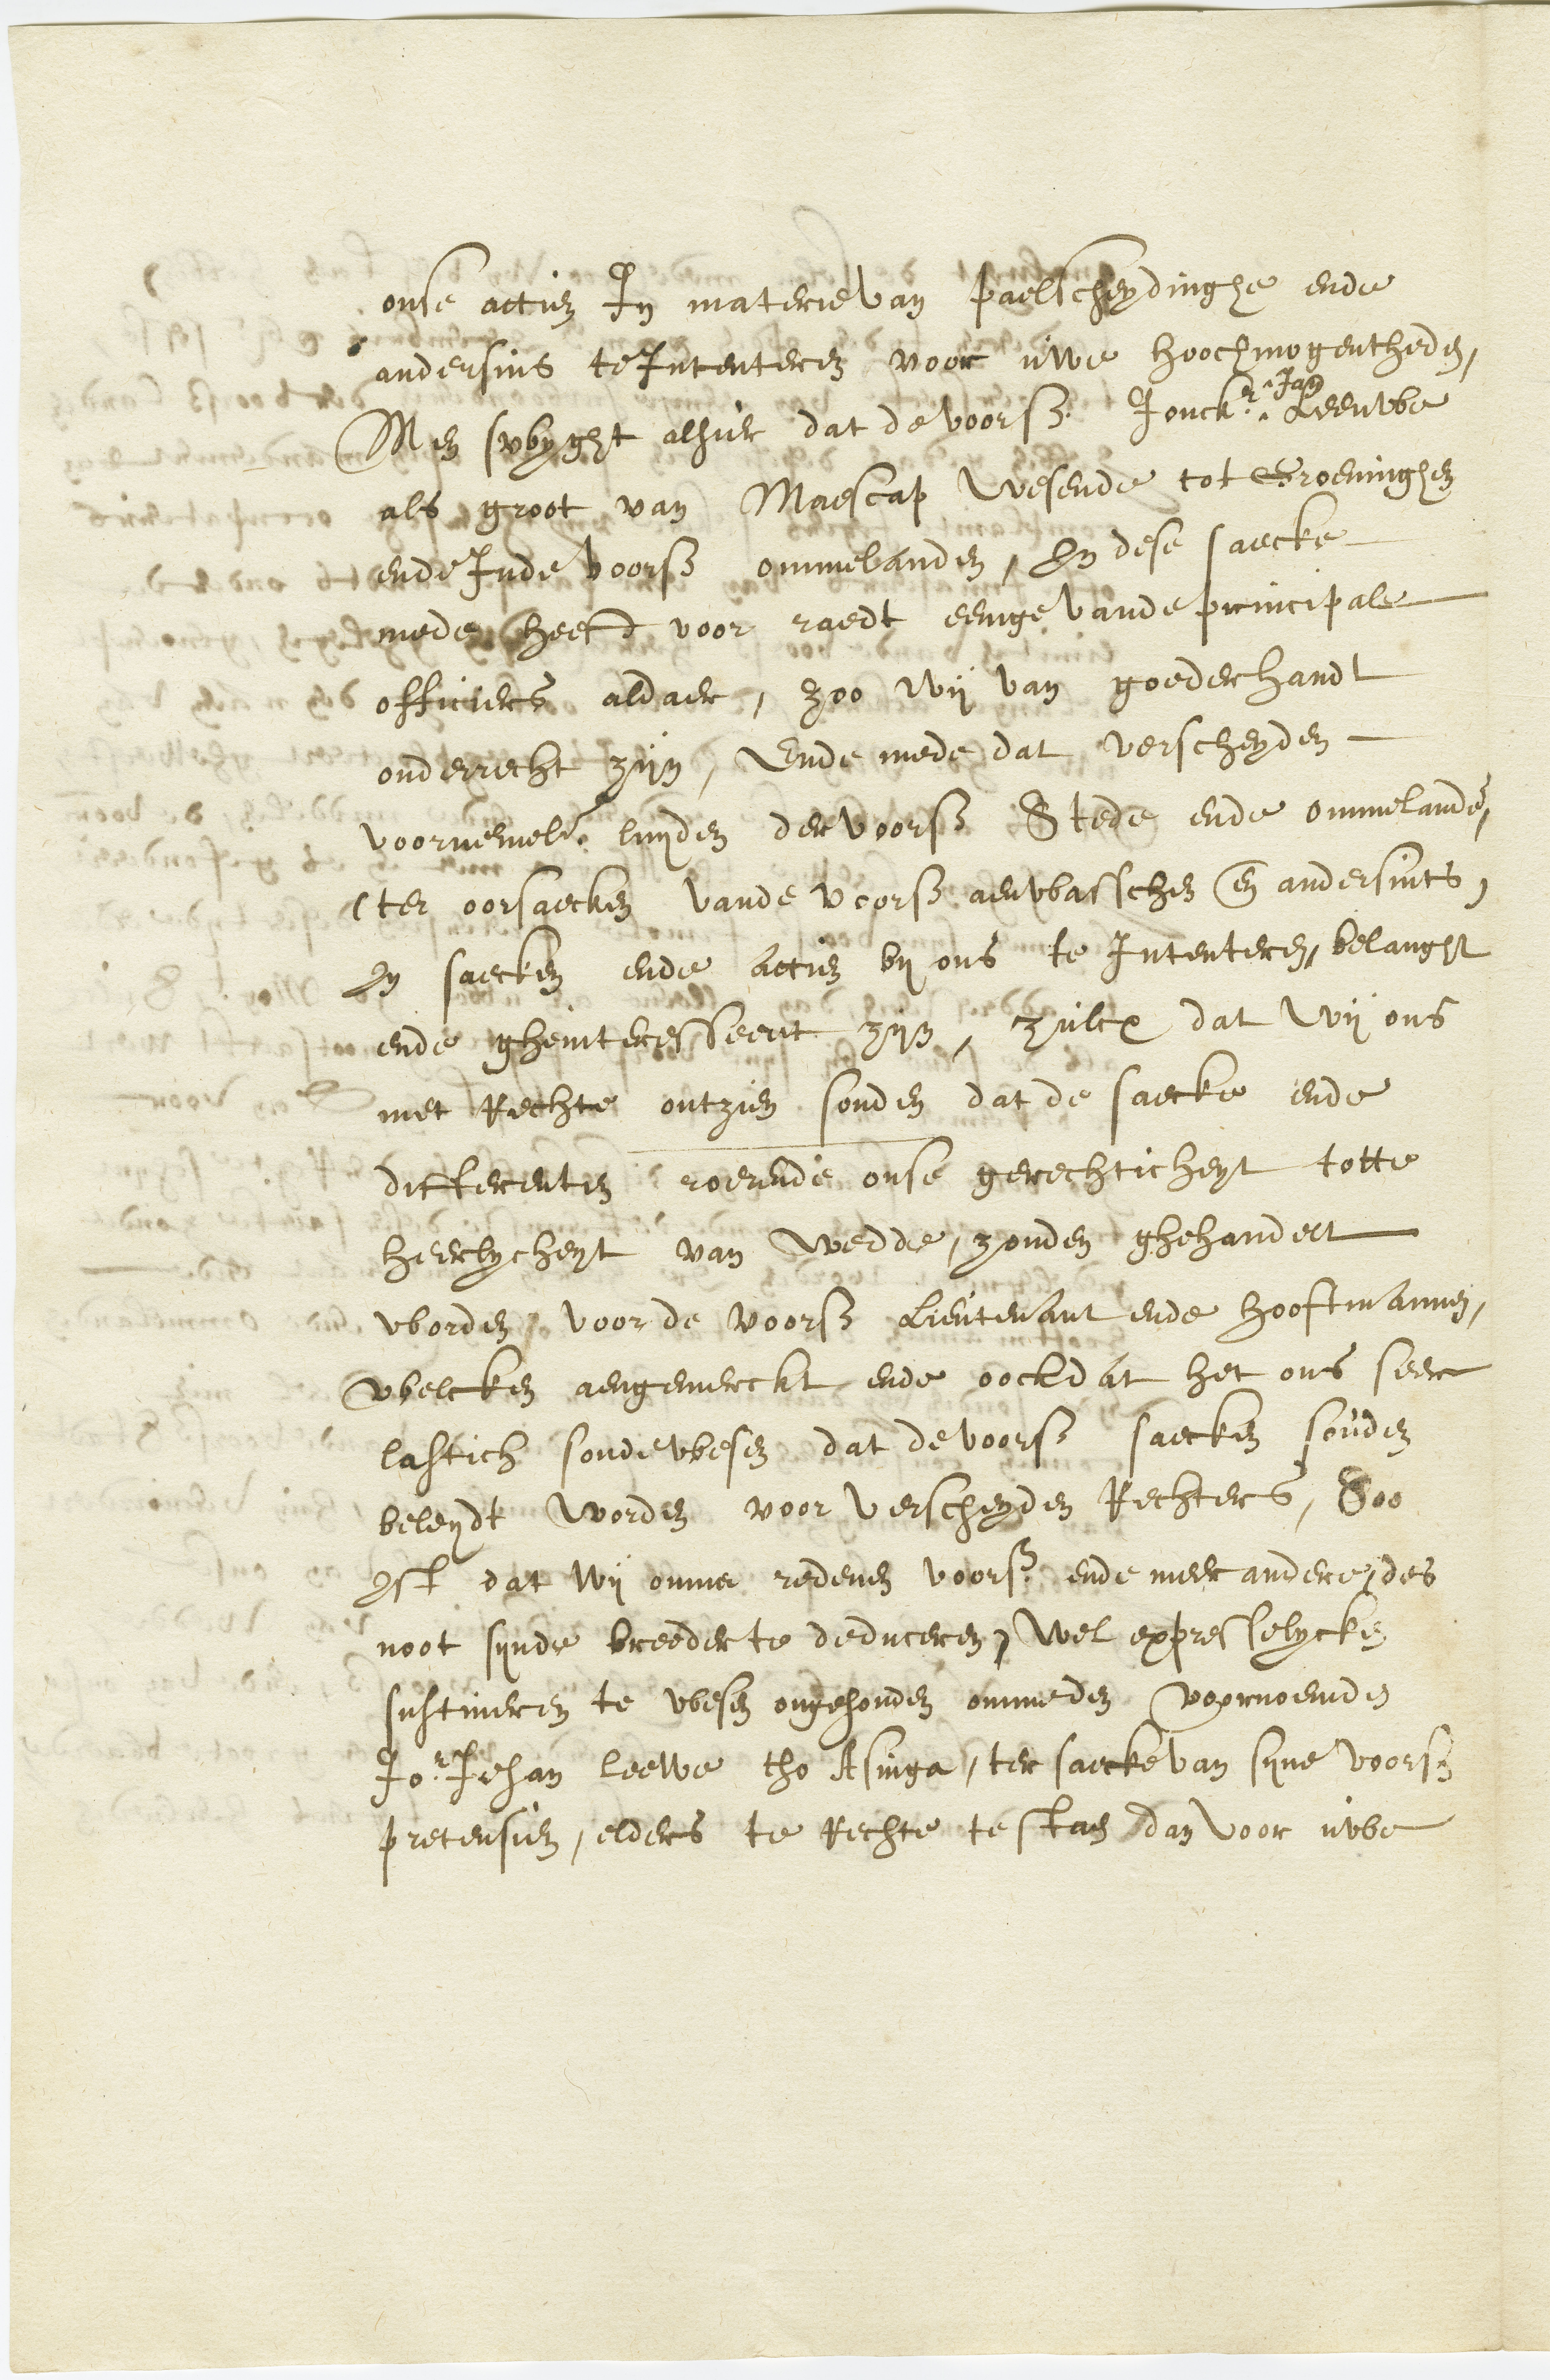 onse actien In materie van paelscheydinghe ende
andersins te Intenteren voor uwe hoochmogentheden,
Men swyght alhier dat de voorsz. Jonckr. Jan Leeuwe
als groot van Maescap wesende tot Groeninghen
ende Inde voorsz ommelanden, In dese saecke
mede heeft voor raedt eenige vande principale
officiers aldaer, zoo wij van goederhandt
onderrecht zijn, Ende mede dat verscheyden
voornemelr. luyden der voorsz Stede ende ommelande,
(ter oorsaecken vande voorsz aenwasschen en andersints,
In saecken ende actien bij ons te Intenteren, belanght
ende gheinteresseert zijn, zulcx dat wij ons
met Rechte ontzien souden dat de saecke ende
differentien roerende onse gerechticheyt totte
heerlycheyt van Wedde, zouden ghehandelt
worden voor de voorsz Lieutenant ende hooftmannen,
welcken aengemerckt ende oock dat het ons seer
lastich soude wesen dat de voorsz saecken souden
beleydt worden voor verscheyden Rechters, Soo
Ist dat wij omme redenen voorsz. ende meer andere, des
noot synde breeder te deduceren, wel expresselycken
sustineren te wesen ongehouden omme den voornoemden
Jor. Johan leewe tho Asinga, ter saecke van syne voorsz
pretensien, elders te Rechte te staen dan voor uwe